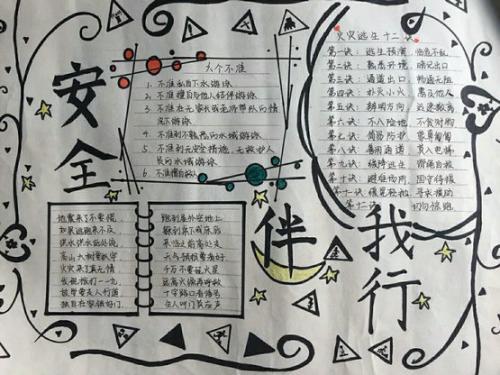 安全
伴
我行
六个不准
1. 不准私自下水游泳
2. 不准擅自与他人结伴游泳
3. 不准在无家长或老师带队的情
况下游泳
4. 不准到不熟悉的水域游泳
5. 不准到无安全设施、无救护人
员的水域游泳
6. 不准擅自
地震来了不要慌
火灾来了真无情
独自在家锁好门
跑到屋外空地上
躲到桌下或床底
千万不要玩火星
十字路口看清
生人叫门莫应声
火灾逃生十二诀
第一诀：逃生预演 临危不乱
第二诀：熟悉环境 暗记出口
第三诀：通道出口 畅通无阻
第四诀：扑灭小火 惠及他人
第五诀：辨明方向 迅速撤离
第六诀：不入险地 不贪财物
第七诀：简易防护 蒙鼻匍匐
第八诀：善用通道 莫入电梯
第九诀：缓降逃生 滑绳自救
第十诀：避难场所 固守待援
第十一诀：缓晃轻抛 寻求援助
第十二诀： 切勿惊跑